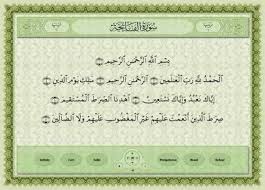 سورة الفاتحة
بِسْمِ اللَّهِ الرَّحْمَٰنِ الرَّحِيمِ
الْحَمْدُ لِلَّهِ رَبِّ الْعَالَمِينَ الرَّحْمَٰنِ الرَّحِيمِ مَالِكِ يَوْمِ الدِّينِ
إِيَّاكَ نَعْبُدُ وَإِيَّاكَ نَسْتَعِينُ اهْدِنَا الصِّرَاطَ الْمُسْتَقِيمَ
صِرَاطَ الَّذِينَ أَنْعَمْتَ عَلَيْهِمْ غَيْرِ الْمَغْضُوبِ عَلَيْهِمْ وَلَا الضَّالِّينَ